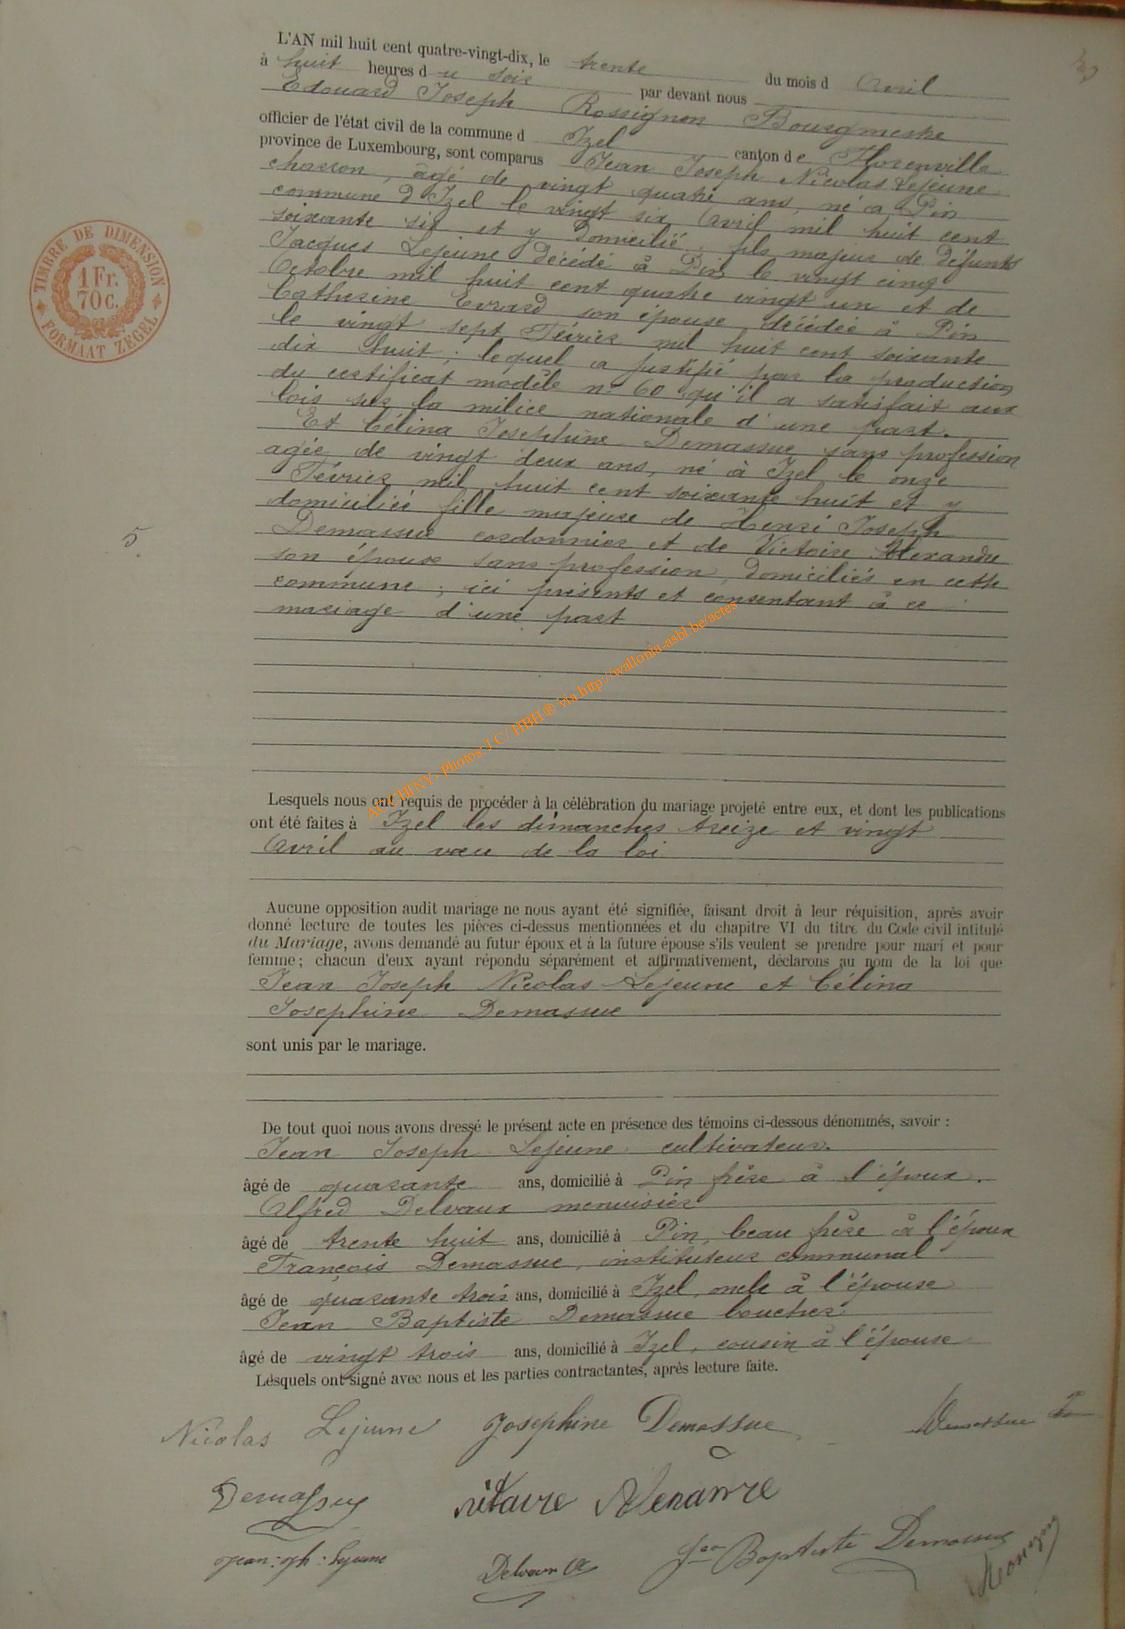 L'AN mil huit cent quatre-vingt-dix, le trente du mois d avril
à huit heures du soir par devant nous
Edouard Joseph Rossignon Bourgmestre
officier de l'état civil de la commune d Izel canton de Florenville
province de Luxembourg, sont comparus Jean Joseph Nicolas Lejeune
charron, âgé de vingt quatre ans, né à Pin
commune d'Izel le vingt six Avril mil huit cent
soixante six et y domicilié, fils majeur de défunts
Jacques Lejeune décédé à Pin le vingt cinq
Octobre mil huit cent quatre vingt un et de
Catherine Evrard son épouse décédée à Pin
le vingt sept Février mil huit cent soixante
dix huit; lequel a justifié par la production
du certificat modèle n° 60 qu'il a satisfait aux
lois sur la milice nationale d'une part.
Et Célina Josephine Demassue sans profession
agée de vingt deux ans, né à Izel le onze
Février mil huit cent soixante huit et y
domiciliée fille majeure de Henri Joseph
Demassue cordonnier et de Victoire Alexandre
son épouse sans profession, domiciliés en cette
commune; ici présents et consentant à ce
mariage d'une part
5.
TIMBRE DE DIMENSION
1 Fr.
70 C.
FORMAAT ZEGEL
Photos J C / HBH ® via http://wallonia-asbl.be/actes
Lesquels nous ont requis de procéder à la célébration du mariage projeté entre eux, et dont les publications
ont été faites à Izel les dimanches treize et vingt
Avril au vœu de la loi
Aucune opposition audit mariage ne nous ayant été signifiée, faisant droit à leur réquisition, après avoir
donné lecture de toutes les pièces ci-dessus mentionnées et du chapitre VI du titre du Code civil intitulé
du Mariage, avons demandé au futur époux et à la future épouse s'ils veulent se prendre pour mari et pour
femme; chacun d'eux ayant répondu séparément et affirmativement, déclarons au nom de la loi que
Jean Joseph Nicolas Lejeune et Célina
Josephine Demassue
sont unis par le mariage.
De tout quoi nous avons dressé le présent acte en présence des témoins ci-dessous dénommés, savoir :
Jean Joseph Lejeune cultivateur.
âgé de quarante ans, domicilié à Pin frère à l'époux.
Alfred Delvaux menuisier
âgé de trente huit ans, domicilié à Pin, beau frère à l'époux
François Demassue, instituteur communal
âgé de quarante trois ans, domicilié à Izel, oncle à l'épouse
Jean Baptiste Demassue boucher
âgé de vingt trois ans, domicilié à Izel, cousin à l'épouse
Lesquels ont signé avec nous et les parties contractantes, après lecture faite.
Nicolas Lejeune Josephine Demassue Demassue
Demassue
Jean: Jph: Lejeune Delvaux A Jean Baptiste Demassue